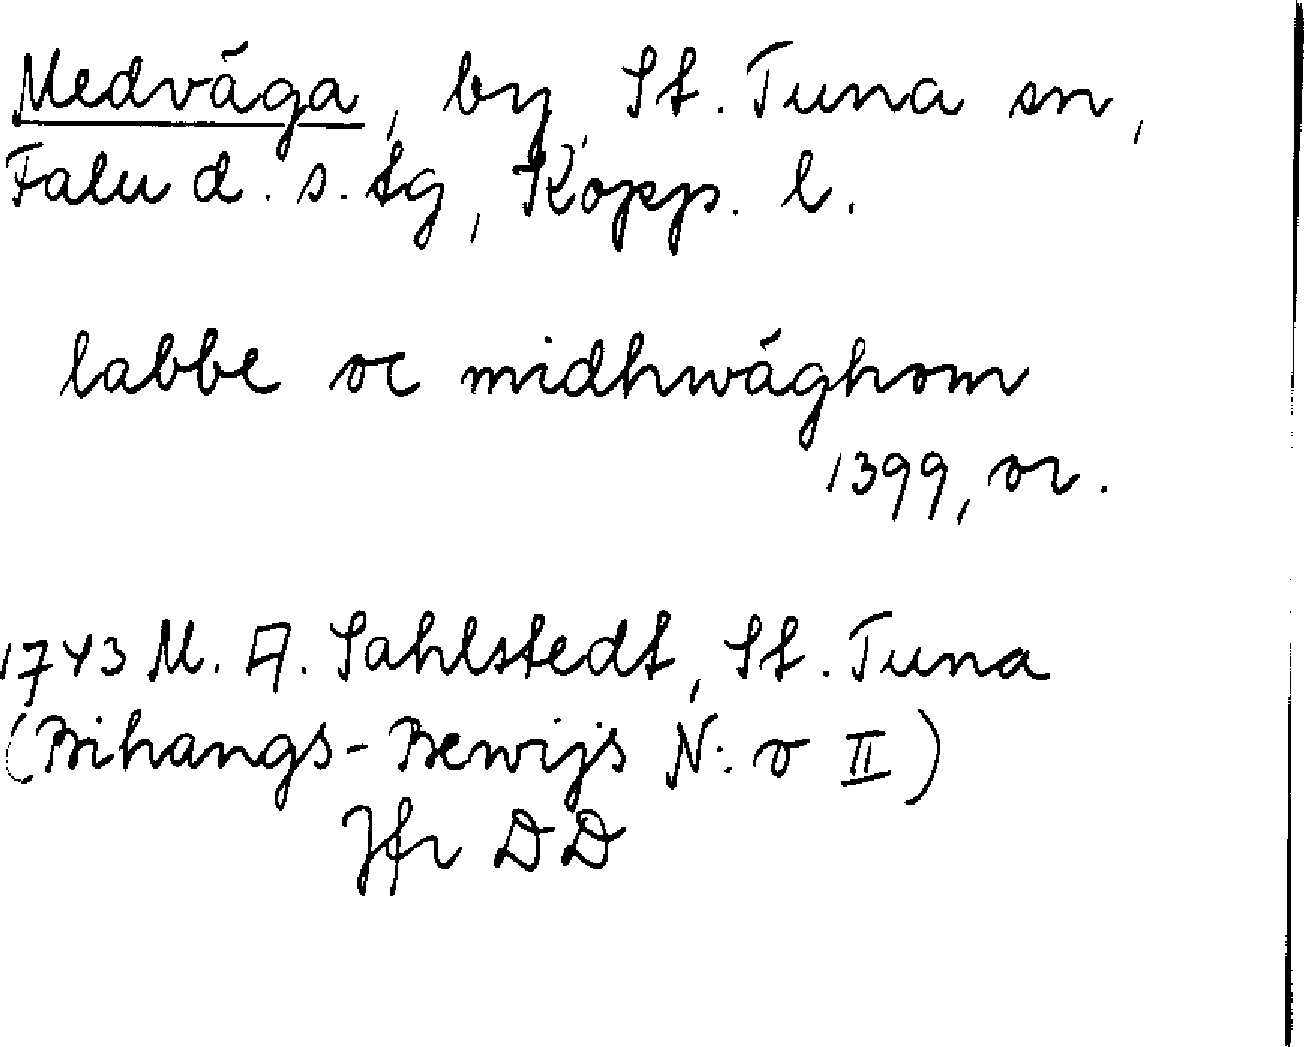 Medväga, by, St. Tuna sn,
Falu d. s. tg, Kopp. l.
labbe oc midhwäghom
1399, or.
1743 M. A. Sahlstedt, St. Tuna
(Bihangs-Bewijs N:o II)
Jfr DD